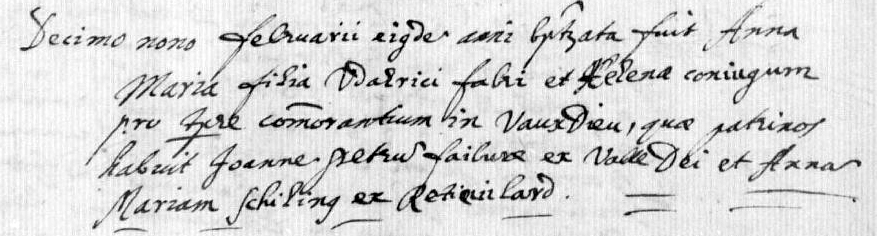 Decimo nono februarii eigde anni bptzata fuit Anna
Maria filia Vdalrici fabri et Helenæ coniugum
pro tpre com̄orantium in VauxDieu, quæ patrinos
habuit Joanne petrū failure ex Valle Dei et Anna
Mariam Schiling ex